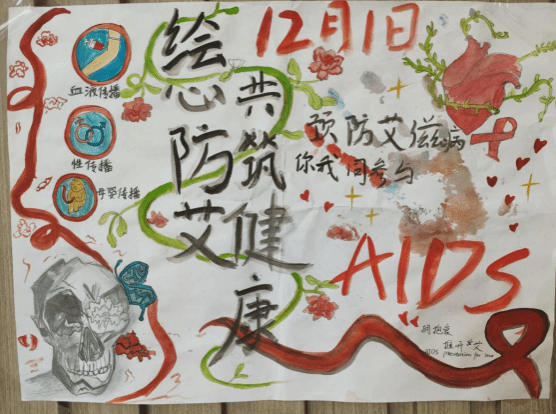 12月1日
绘心防艾
共筑健康
预防艾滋病
你我同参与
血液传播
性传播
母婴传播
AIDS
拥抱爱
AIDS prevention for love